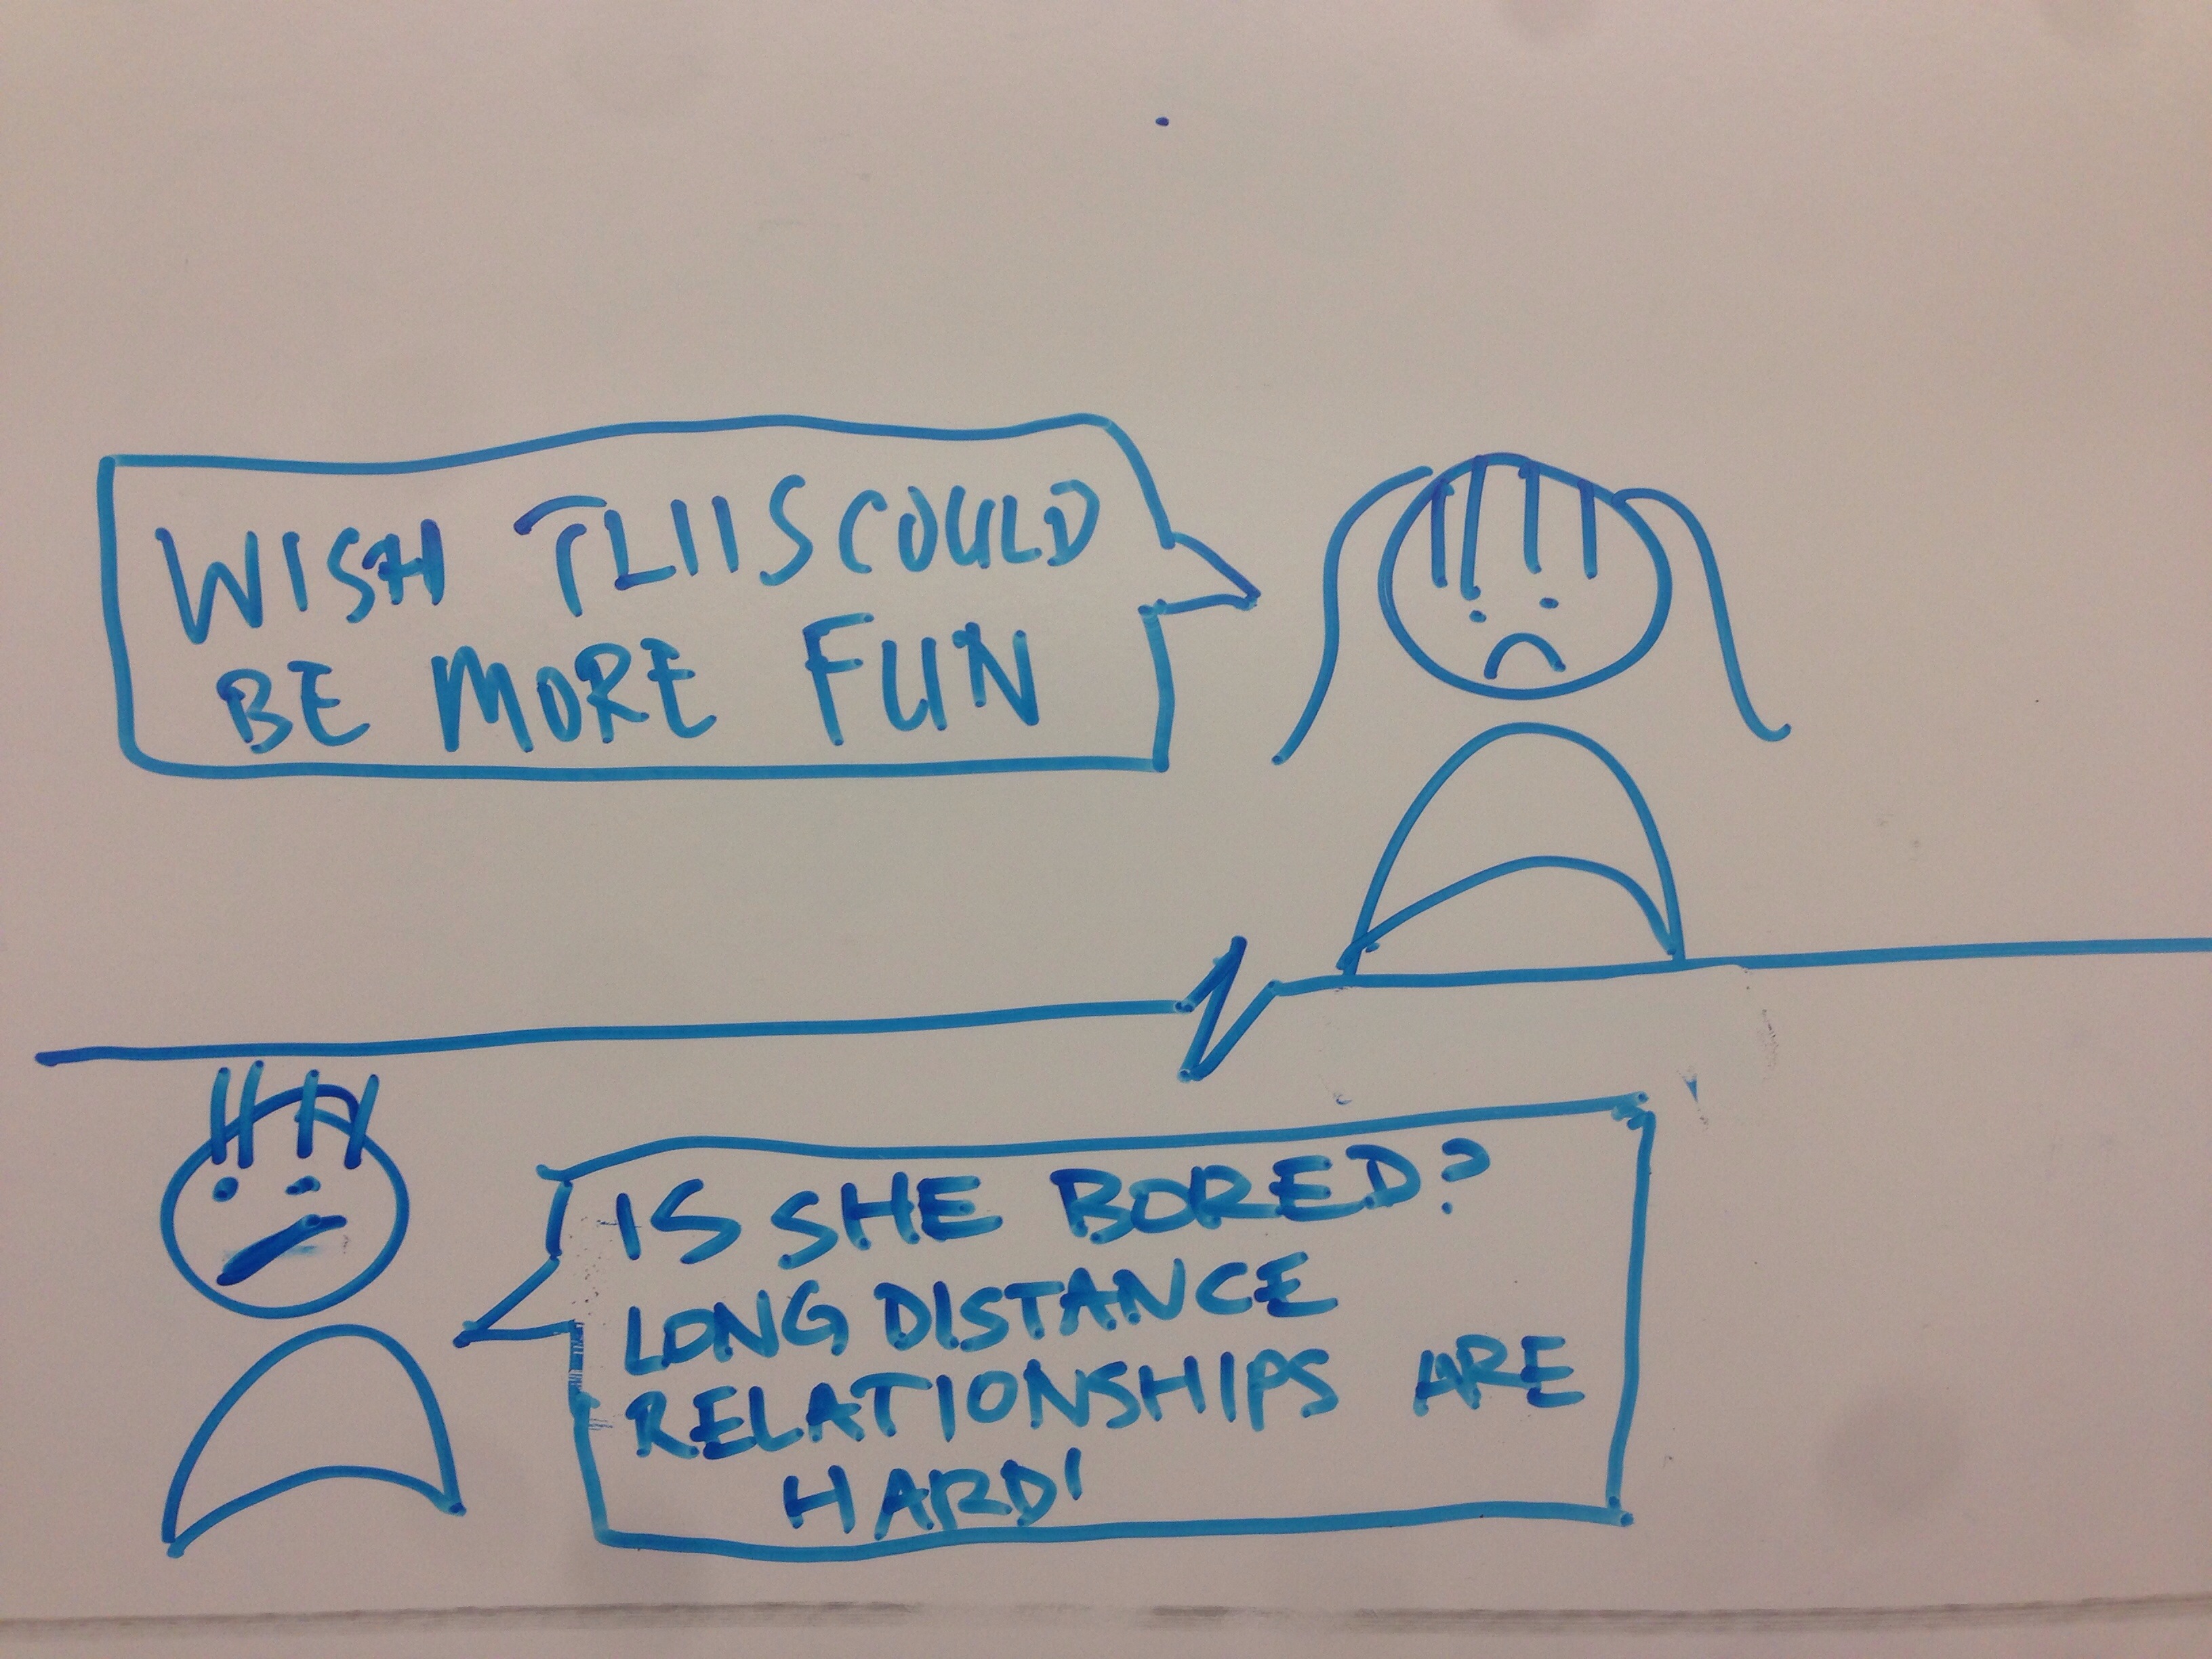 WISH THIS COULD
BE MORE FUN
IS SHE BORED?
LONG DISTANCE
RELATIONSHIPS ARE
HARD!